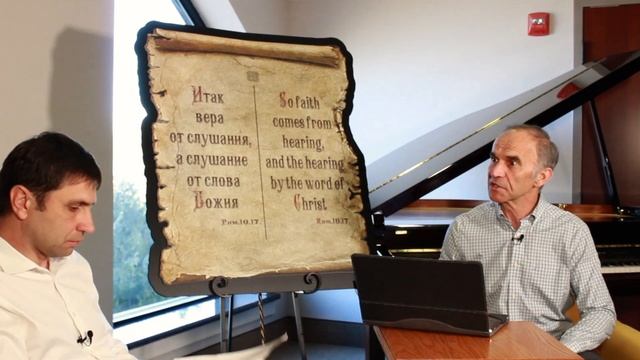 Итак
вера
от слушания,
а слушание
от слова
Божия
Рим.10.17.
So faith
comes from
hearing,
and the hearing
by the word of
Christ
Rom.10.17.